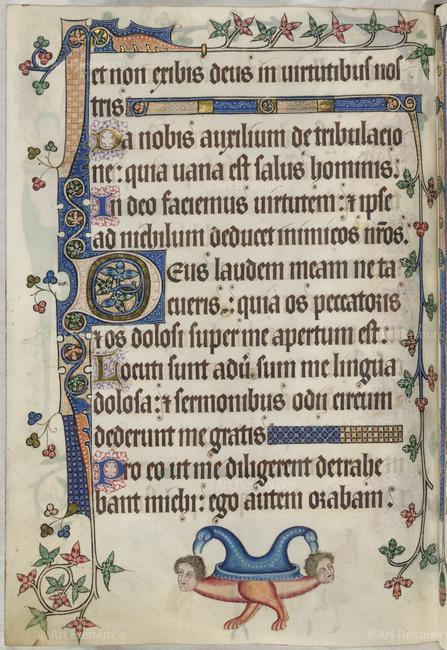 et non exibis deus in uirtutibus nos
tris
Da nobis auxilium de tribulacio
ne: quia uana est salus hominis.
In deo faciemus uirtutem: ⁊ ipse
ad nichilum deducet inimicos nr̄os.
Deus laudem meam ne ta
cueris: quia os peccatoris
⁊ os dolosi super me apertum est.
Locuti sunt adū sum me lingua
dolosa: ⁊ sermonibus odii circum
dederunt me gratis
Pro eo ut me diligerent detrahe
bant michi: ego autem orabam.
© Art Resource
© Art Resource